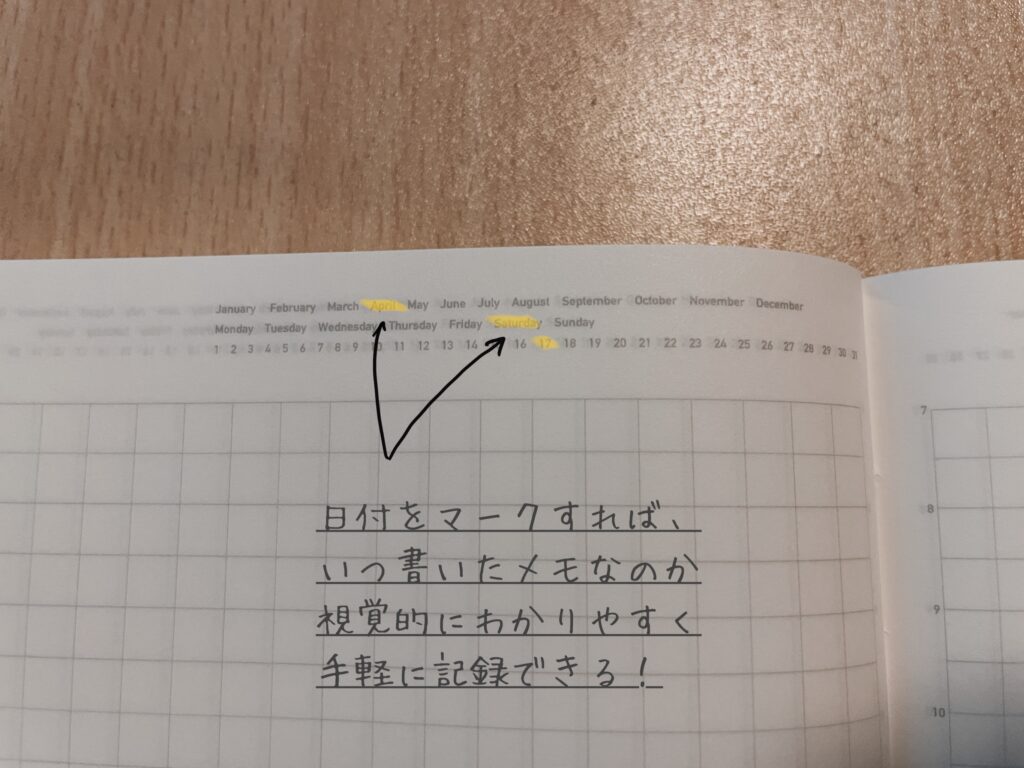 January February March April May June July August September October November December
Monday Tuesday Wednesday Thursday Friday Saturday Sunday
1 2 3 4 5 6 7 8 9 10 11 12 13 14 16 17 18 19 20 21 22 23 24 25 26 27 28 29 30 31
7
8
9
10
日付をマークすれば、
いつ書いたメモなのか
視覚的にわかりやすく
手軽に記録できる!